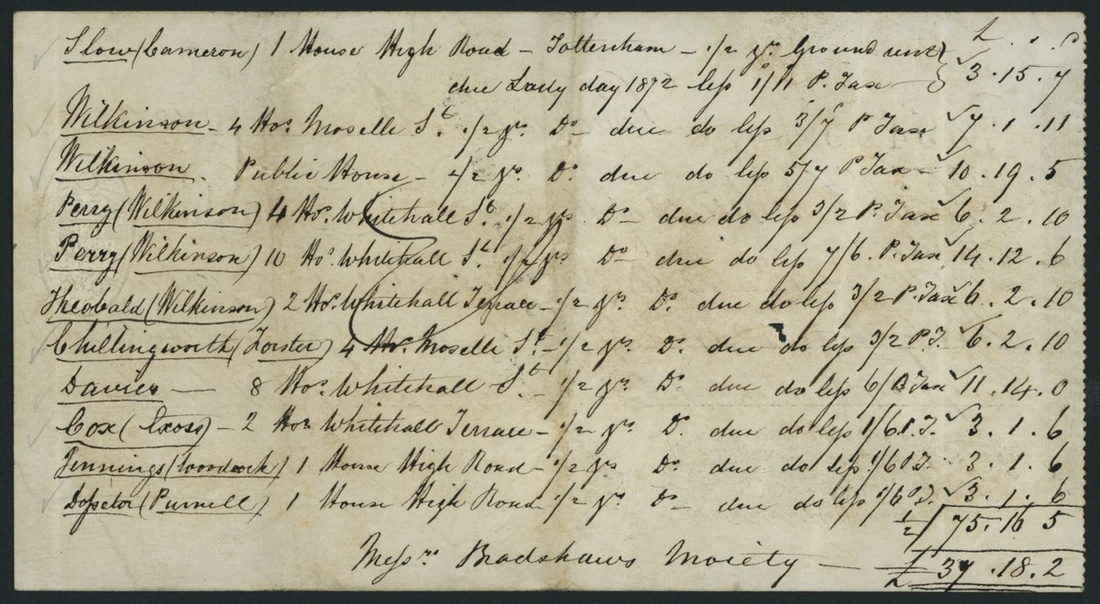 £ . s . d
Slow (Cameron) 1 House High Road – Tottenham – 1/2 yr. Ground rent
due Lady day 1872 less 1/11 P. Tax — 3 . 15 . 7
Wilkinson – 4 Hos. Moselle St. 1/2 yr. Do – due do less 3/7 P Tax 7 . 1 . 11
Wilkinson . Public House – 1/2 yr. Do. due do less 5/7 P Tax – 10 . 19 . 5
Perry (Wilkinson) 4 Hos. Whitehall St. 1/2 yr. Do – due do less 3/2 P. Tax 6 . 2 . 10
Perry (Wilkinson) 10 Hos. Whitehall St. 1/2 yr. Do – due do less 7/6 . P. Tax 14 . 12 . 6
Theobald (Wilkinson) 2 Hos. Whitehall Terrace – 1/2 yr. Do. due do less 3/2 P. Tax 6 . 2 . 10
Chillingworth (Forster) 4 Hos. Moselle St. – 1/2 yr. Do. due do less 3/2 P.T. 6 . 2 . 10
Davies — 8 Hos. Whitehall St. – 1/2 yr. Do. due do less 6/ P Tax 11 . 14 . 0
Cox ( ) – 2 Hos. Whitehall Terrace – 1/2 yr. Do. due do less 1/6 P.T. 3 . 1 . 6
Jennings (Woodcock) 1 House High Road – 1/2 yr. Do. due do less 1/6 P.T. 3 . 1 . 6
(Purnell) 1 House High Road – 1/2 yr. Do – due do less 1/6 P.T. 3 . 1 . 6
1/2 75 . 16 5
Messrs. Bradshaws Moiety — £ 37 . 18 . 2